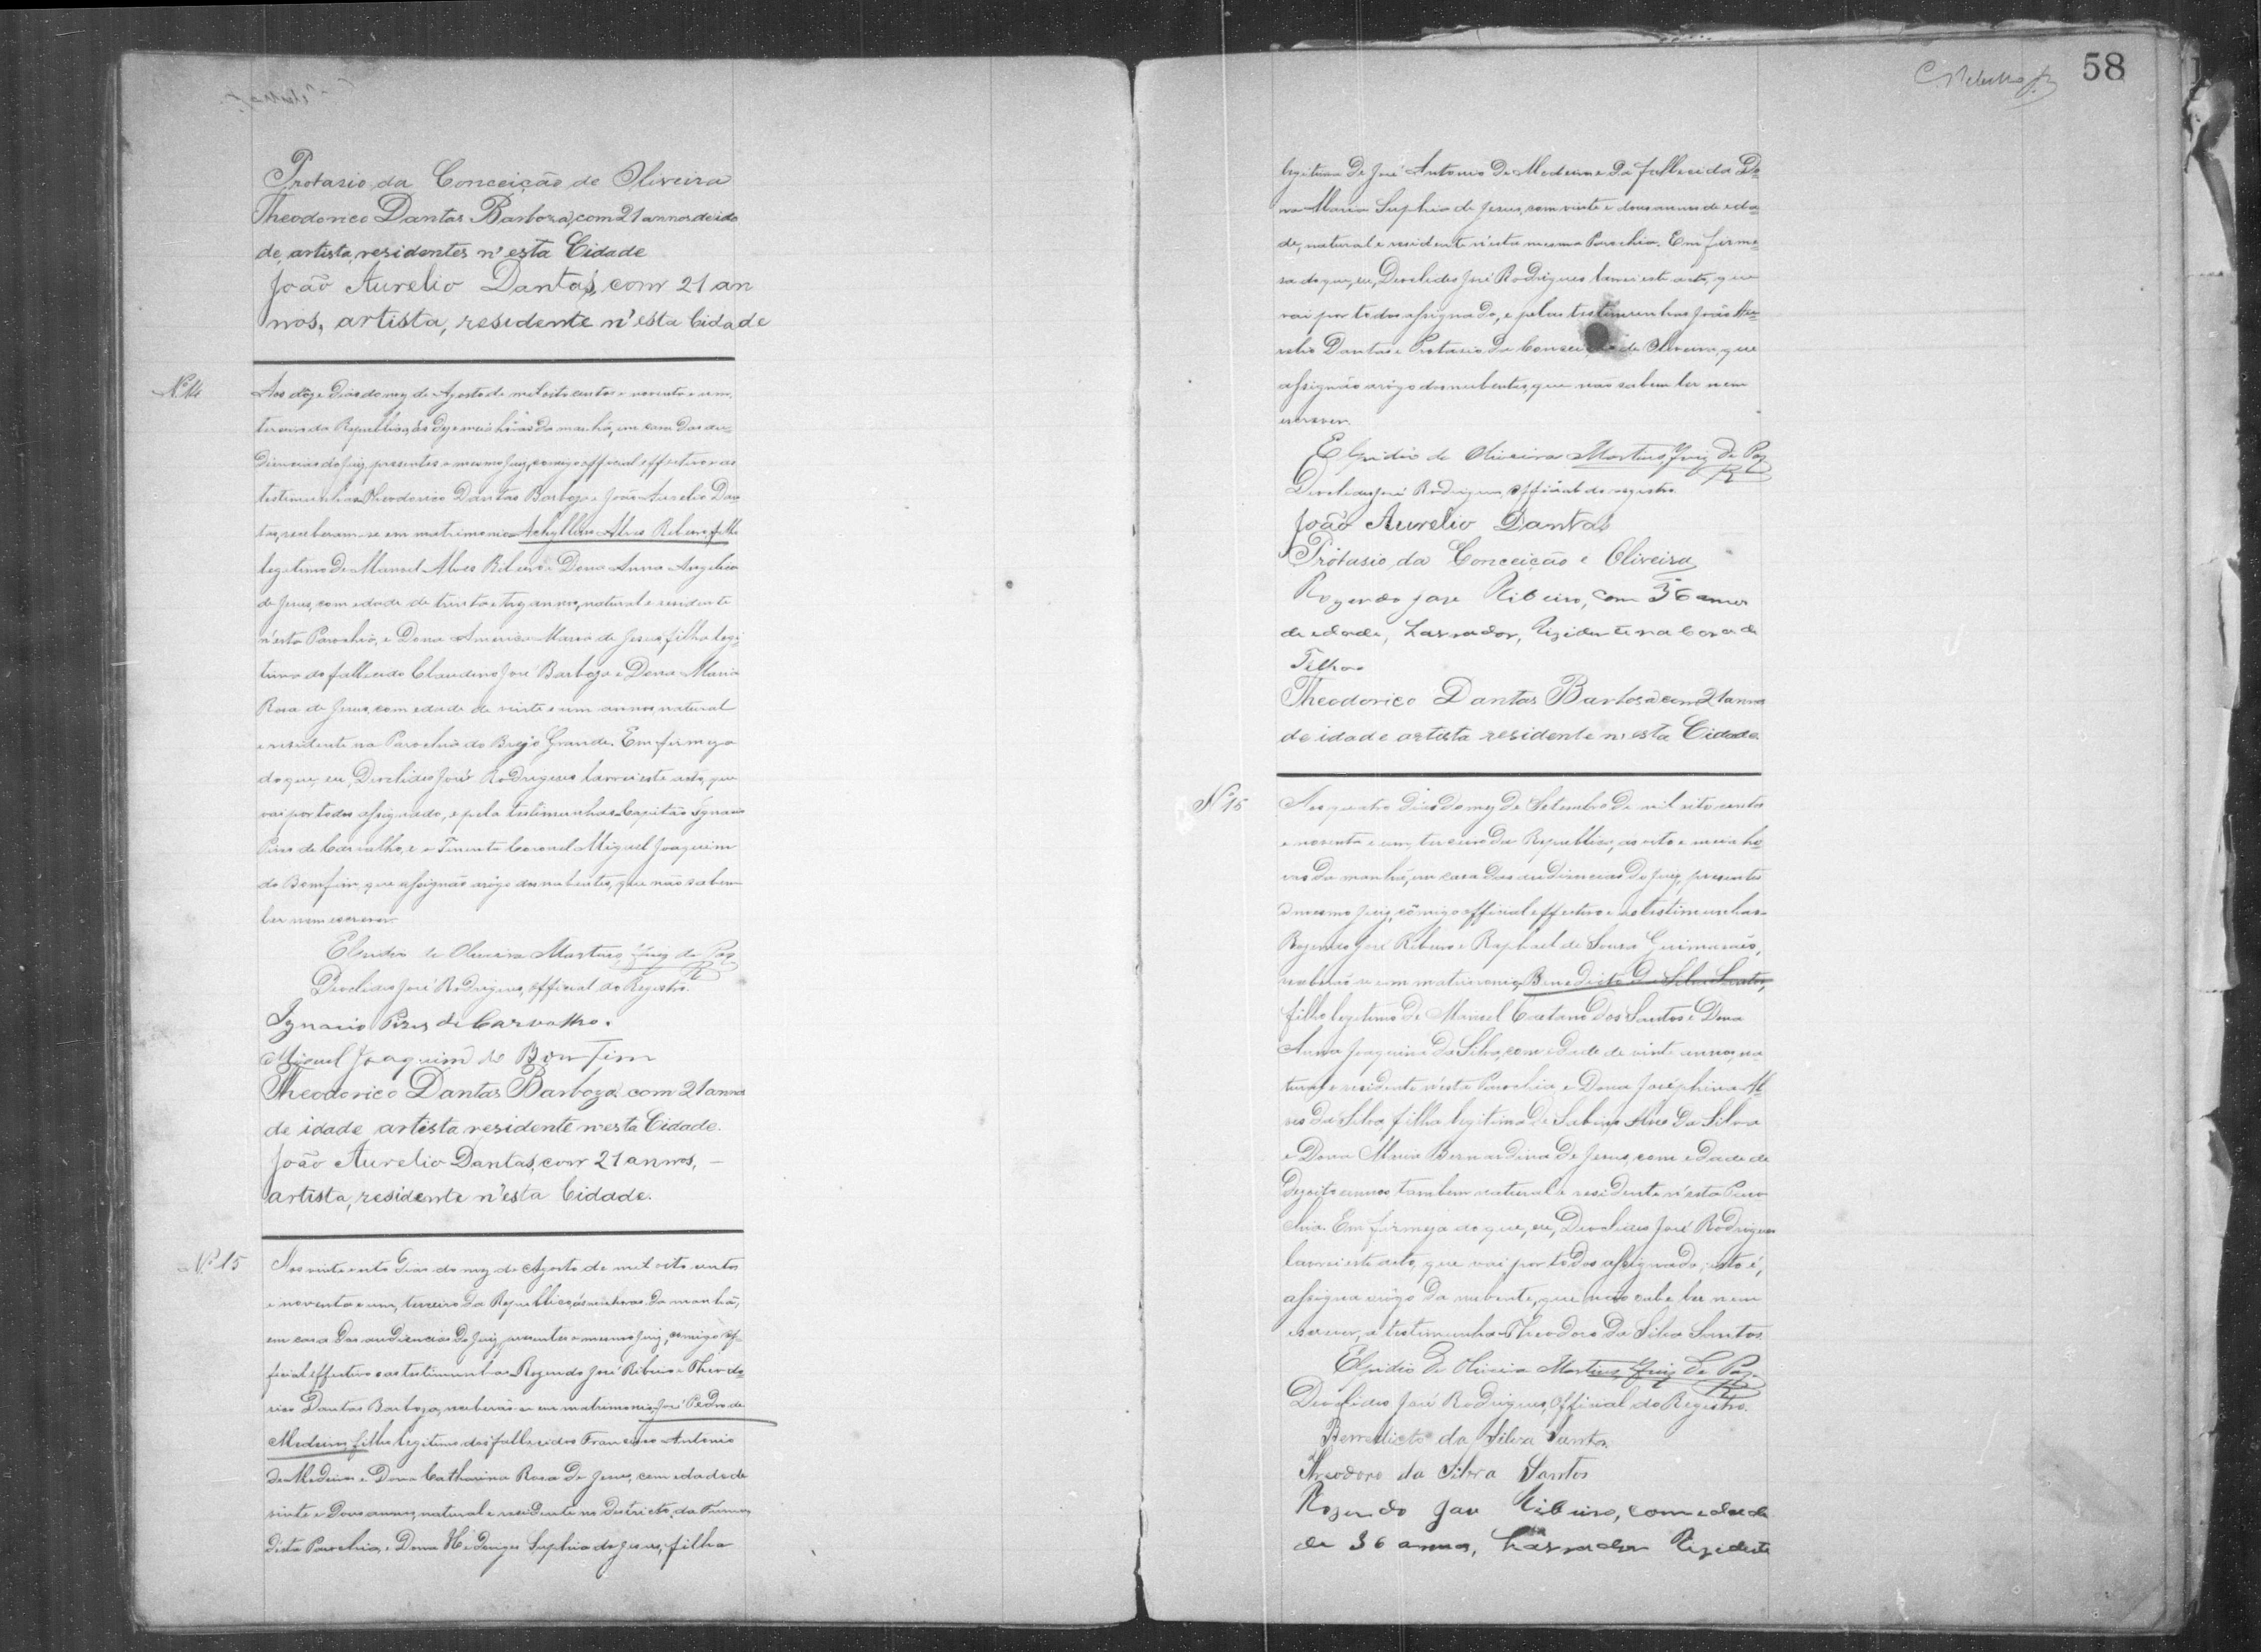 Protasio da Conceição de Oliveira
Theodorico Dantas Barboza, com 21 annos de ida
de, artista, residentes n'esta Cidade
João Aurelio Dantas, com 21 an
nos, artista, residente n'esta Cidade
Nº 14
Aos doze dias do mez de Agosto de mil oito centos e noventa e um,
terceiro da Republica, ás dez e meia horas da manhã, em casa das au-
diencias do Juiz, presentes o mesmo Juiz, comigo official effectivo e as
testimunhas Theodorico Dantas Barboza e João Aurelio Dan
tas, receberam-se em matrimonio Achylles Alves Ribeiro, filho
legitimo de Manoel Alves Ribeiro e Dona Anna Angelica
de Jesus, com edade de trinta e tres annos, natural e residente
n'esta Parochia, e Dona America Maria de Jesus, filha legi
tima do fallecido Claudino José Barboza e Dona Maria
Rosa de Jesus, com edade de vinte e um annos, natural
e residente na Parochia do Brejo Grande. Em firmeza
do que, eu, Deoclides José Rodrigues lavrei este acto, que
vai por todos assignado, e pela testimunhas Capitão Ignacio
Pires de Carvalho, e o Tenente Coronel Miguel Joaquim
do Bomfim, que assignão arôgo dos nubentes, que não sabem
ler nem escrever.
Elpidio de Oliveira Martins, Juiz de Paz
Deoclides José Rodrigues, official do Registro.
Ignacio Pires de Carvalho.
Miguel Joaquim do Bom fim
Theodorico Dantas Barboza com 21 annos
de idade artista residente n'esta Cidade.
João Aurelio Dantas, com 21 annos, –
artista, residente n'esta Cidade.
Nº 15
Aos vinte oito dias do mez de Agosto de mil oito centos
e noventa e um, terceiro da Republica, ás horas da manhã,
em casa das audiencias do Juiz, presentes o mesmo Juiz, comigo of-
ficial effectivo e as testimunhas Rozendo José Ribeiro e Theodo-
rico Dantas Barboza, receberão-se em matrimonio, José Pedro de
Medeiros, filho legitimo dos fallecidos Francisco Antonio
de Medeiros e Dona Catharina Rosa de Jesus, com edade de
vinte e dous annos, natural e residente no Districto da
desta Parochia, e Dona Sophia de Jesus, filha
58
legitima de José Antonio de Medeiros e da fallecida Do-
na Maria Sophia de Jesus, com vinte e dous annos de eda-
de, natural e residente n'esta mesma Parochia. Em firme-
sa do que, eu, Deoclides José Rodrigues lavrei este acto, que
vai por todos assignado, e pelas testimunhas João Au-
relio Dantas e Protasio da Conceição de Oliveira, que
assignão arôgo dos nubentes, que não sabem ler nem
escrever.
Elpidio de Oliveira Martins, Juiz de Paz
Deoclides José Rodrigues, official do registro.
João Aurelio Dantas
Protasio da Conceição e Oliveira
Rozendo Jose Ribeiro, com 36 annos
de edade, Lavrador, Rezidente na Cova de
Telha
Theodorico Dantas Barbosa com 21 annos
de idade artista residente n'esta Cidade.
Nº 15
Aos quatro dias do mez de Setembro de mil oito centos
e noventa e um, terceiro da Republica, as oito e meia ho-
ras da manhã, em casa das audiencias do Juiz, presentes
o mesmo Juiz, cômigo official effectivo e as testimunhas
Rozendo José Ribeiro e Raphael de Souza Guimarães,
receberão-se em matrimonio, Benedicto da Silva Santos,
filho legitimo de Manoel Caetano dos Santos e Dona
Anna Joaquina da Silva, com edade de vinte annos, na-
tural e residente n'esta Parochia, e Dona Josephina Al-
ves da Silva, filha legitima de Sabino Alves da Silva
e Dona Maria Bernardina de Jesus, com edade de
dezoito annos tambem natural e residente n'esta Paro
chia. Em firmeza do que, eu, Deoclides José Rodrigues
lavrei este acto, que vai por todos assignado, isto é,
assigna arôgo da nubente, que não sabe ler nem
escrever, a testimunha Theodoro da Silva Santos
Elpidio de Oliveira Martins, Juiz de Paz
Deoclides José Rodrigues, Official do Registro.
Benedicto da Silva Santos
Theodoro da Silva Santos
Rozendo Jose Ribeiro, com edade
de 36 annos, Lavrador Rezidente